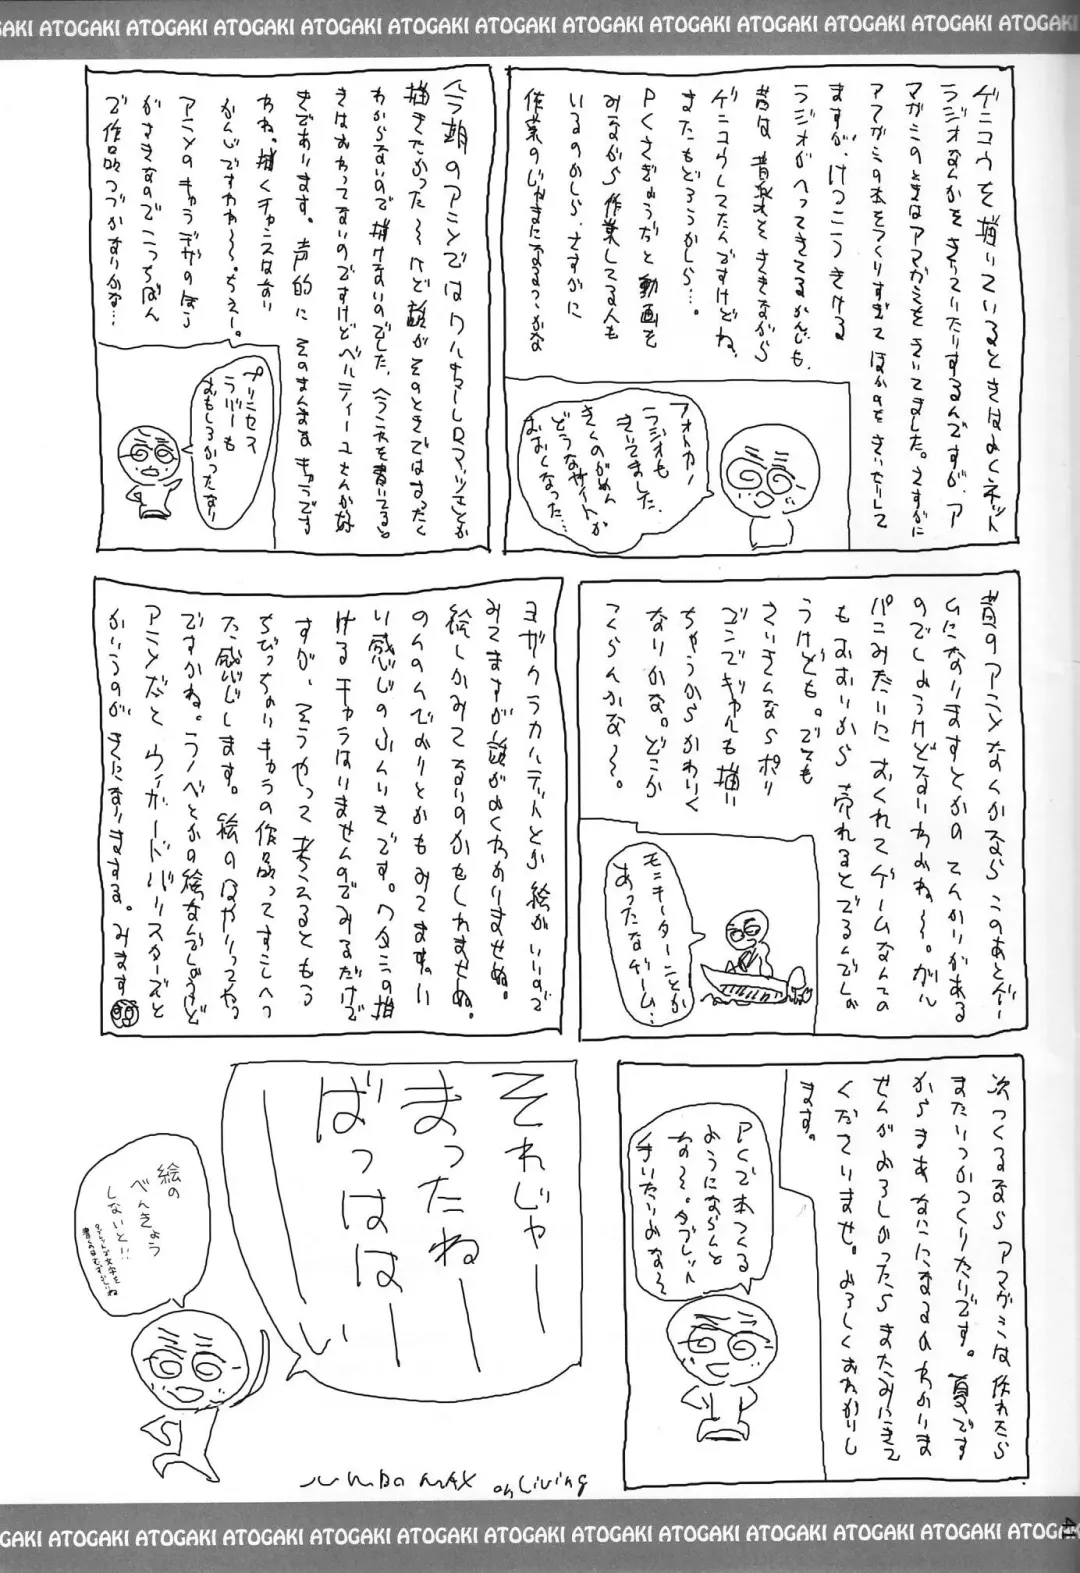 ATOGAKI ATOGAKI ATOGAKI ATOGAKI ATOGAKI ATOGAKI ATOGAKI ATOGAKI
ゲンコウを描いているときはよくネット
ラジオなんかをきいていたりするんですが、ア
マガミのときはアマガミをきいてました。さすがに
アマガミの本をつくりすぎてほかのをきいたりして
ますが、けっこうきける
ラジオがへってきてるかんじも、
昔は音楽をききながら
ゲンコウしてたんですけどね、
またもどろうかしら…。
PCさぎょうだと動画を
みながら作業してる人も
いるのかしら、さすがに
作業のじゃまになるっつかな
アオトカノ
ラジオも
きいてました、
きくのがめん
どうなサイトが
おおくなった…
今期のアニメではワルキューレロマンツェとか
描きたかった〜けど話がそのときではまったく
わからないので描けないのでした、今コレを書いてると
きはおわってないのですけどベルティーユさんが好
きであります。声的にそのまんまなキャラです
わね。描くチャンスはない
かんじですわ〜。ちぇー。
アニメのキャラデザのほう
がすきなのでこっちばん
で作品つづかないかな…
プリンセス
ラバーも
おもしろかったなり
昔のアニメなんかなら このあとゲー
ムになりますとかの てんかいがある
のでしょうけどないわよね〜。ガル
パンみたいにおくれてゲームなんての
もおおいから 売れるとでるんでしょ
うけども。でも
さいきんならポリ
ゴンでギャルも描い
ちゃうからかわいく
なりかな。どこか
つくらんかな〜。
モンキーターンとか
あったなゲーム…
ヨザクラカルテットとか絵がいいので
みてますが話がよくわかりませぬ。
絵しかみてないのかもしれませぬ。
のんのんびよりとかもみてます。いい
い感じのふんいきです。ワタシの描
けるキャラはいませんのでみるだけで
すが、そうやって考えるともう
ちびっちゃいキャラの作品ってすこしへっ
た感じします。絵のはやりってやつ
ですかね。ラノベとかの絵なんでしょうけど
アニメだと ウィザードバリスターズと
かいうのが きになりまする。みます
次つくるなら アマガミは作れたら
またいつかつくりたいです。夏です
からまあなにになるのかわかりま
せんがよろしかったらまたみにきて
くださいませ。よろしくおねがいし
ます。
PCで本つくる
ようにならんと
なぁ。タブレット
それじゃー
まったねー
ばっはは
ーーい
絵の
べんきょう
しないと!!
JUMBO MAX on Living
41
OGAKI ATOGAKI ATOGAKI ATOGAKI ATOGAKI ATOGAKI ATOGAKI ATOGAKI